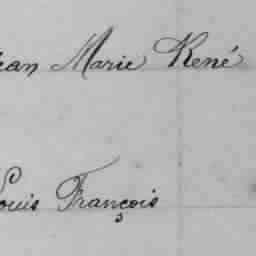 Jean Marie René
Louis François